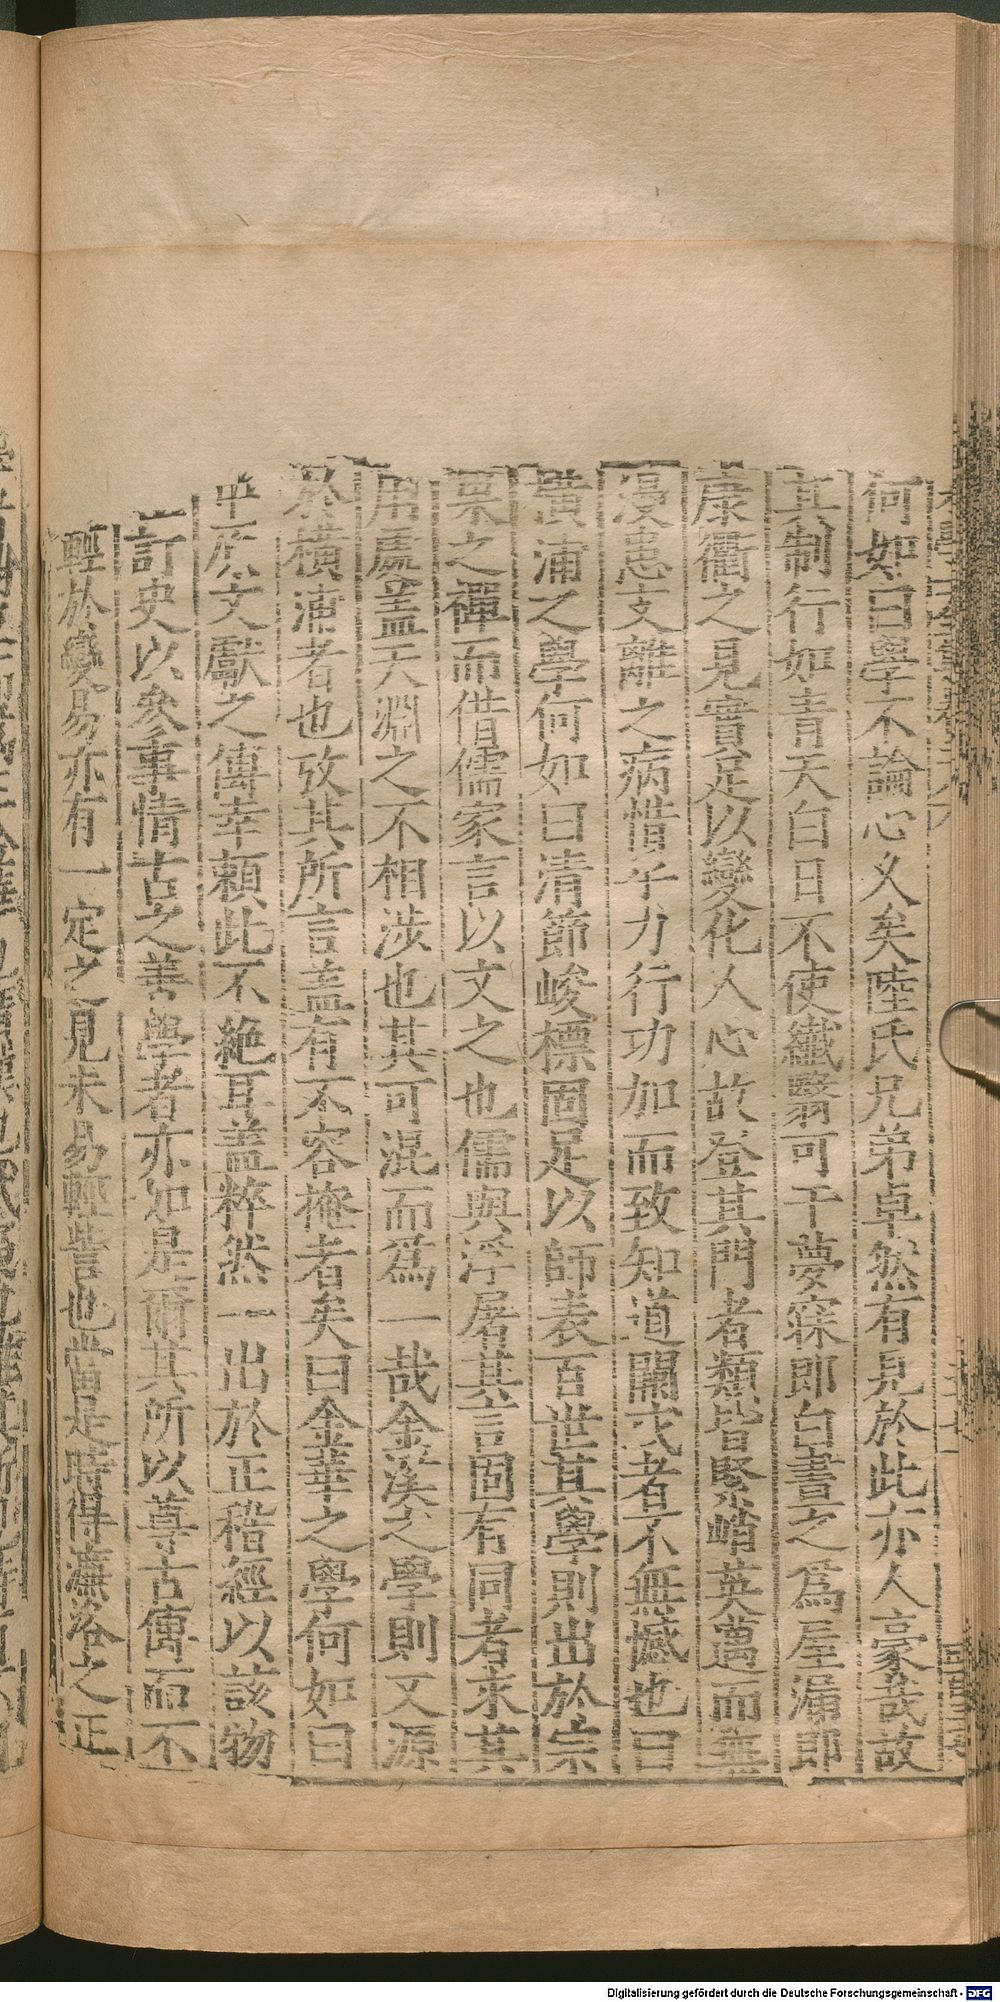 何如曰學不論心乂矣陸氏兄弟卓然有見於此亦人豪哉故
其制行如青天白日不使纖翳可干夢寐即白晝之爲屋漏即
康衢之見實足以變化人心故登其門者類皆緊峭英邁而無
漫患支離之病惜乎力行功加而致知道闕或者不無憾也曰
橫浦之學何如曰清節峻標固足以師表百世其學則出於宗
杲之禪而借儒家言以文之也儒與浮屠其言固有同者求其
用處盖天淵之不相涉也其可混而爲一哉金溪之學則又源
於橫浦者也攷其所言盖有不容掩者矣曰金華之學何如曰
中原文獻之傳幸賴此不絶耳盖粹然一出於正稽經以該物
訂史以參事情古之善學者亦如是爾其所以尊古傳而不
輕於變易亦有一定之見未易輕訾也當是時得濂洛之正
Digitalisierung gefördert durch die Deutsche Forschungsgemeinschaft - DFG